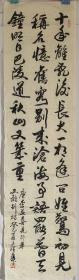 十年離亂後長大一相逢問姓驚初見
稱名憶舊容别來滄海事語罷暮天
鐘明日巴陵道秋山又幾重